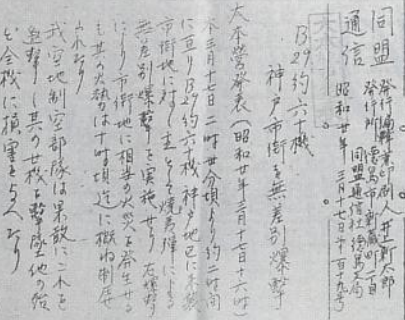 同盟
通信
発行編輯兼印刷人 井上新太郎
発行所 徳島市新蔵町一丁目
同盟通信社徳島支局
昭和廿年三月十七日 第百十九号
B29約六十機
神戸市街を無差別爆撃
大本営発表(昭和廿年三月十七日十六時)
本三月十七日二時廿分頃より約二時間
に亘りB29約六十機神戸地区に来襲
市街地に対し主として焼夷弾による
無差別爆撃を実施せり 右爆撃
により市街地に相当の火災を発生せる
も其の火勢は十時頃迄に概ね制圧
せられたり
我空地制空部隊は果敢にこれを
邀撃し其の廿機を撃墜他の殆
ど全機に損害を与へたり